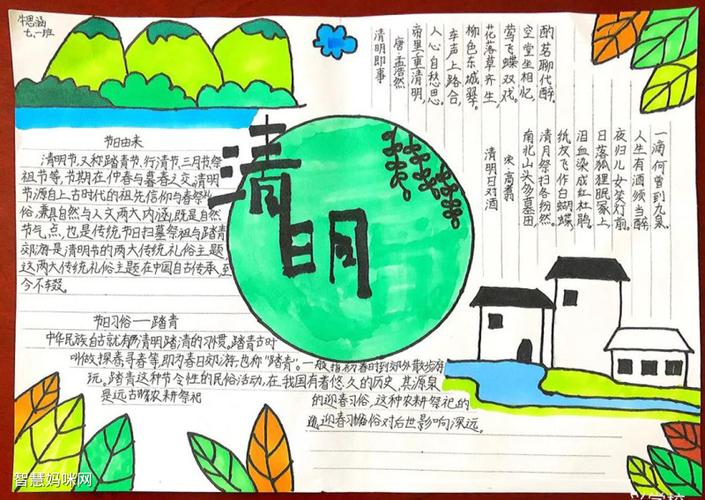 牛思涵
七.一班
节日由来
清明节,又称踏青节、行清节、三月节、祭
祖节等,节期在仲春与暮春之交。清明
节源自上古时代的祖先信仰与春祭礼
俗,兼具自然与人文两大内涵,既是自然
节气点,也是传统节日扫墓祭祖与踏青
郊游是清明节的两大传统礼俗主题
这两大传统礼俗主题在中国自古传承,至
今不辍。
清明
清明即事
唐.孟浩然
帝里重清明,
人心自愁思。
车声上路合,
柳色东城翠。
花落草齐生,
莺飞蝶双戏。
空堂坐相忆,
酌茗聊代醉。
清明日对酒
宋 高翥
南北山头多墓田,
清月祭扫各纷然。
纸灰飞作白蝴蝶,
泪血染成红杜鹃。
日落狐狸眠冢上,
夜归儿女笑灯前。
人生有酒须当醉,
一滴何曾到九泉。
节日习俗——踏青
中华民族自古就有清明踏清的习惯。踏青古时
叫做探春,寻春等,即为春日郊游,也称“踏青”。一般指初春时到郊外散步游
玩。踏青这种节令性的民俗活动,在我国有着悠久的历史,其源泉
是远古农耕祭祀的迎春习俗,这种农耕祭祀的
迎春习俗对后世影响深远。
智慧妈咪网